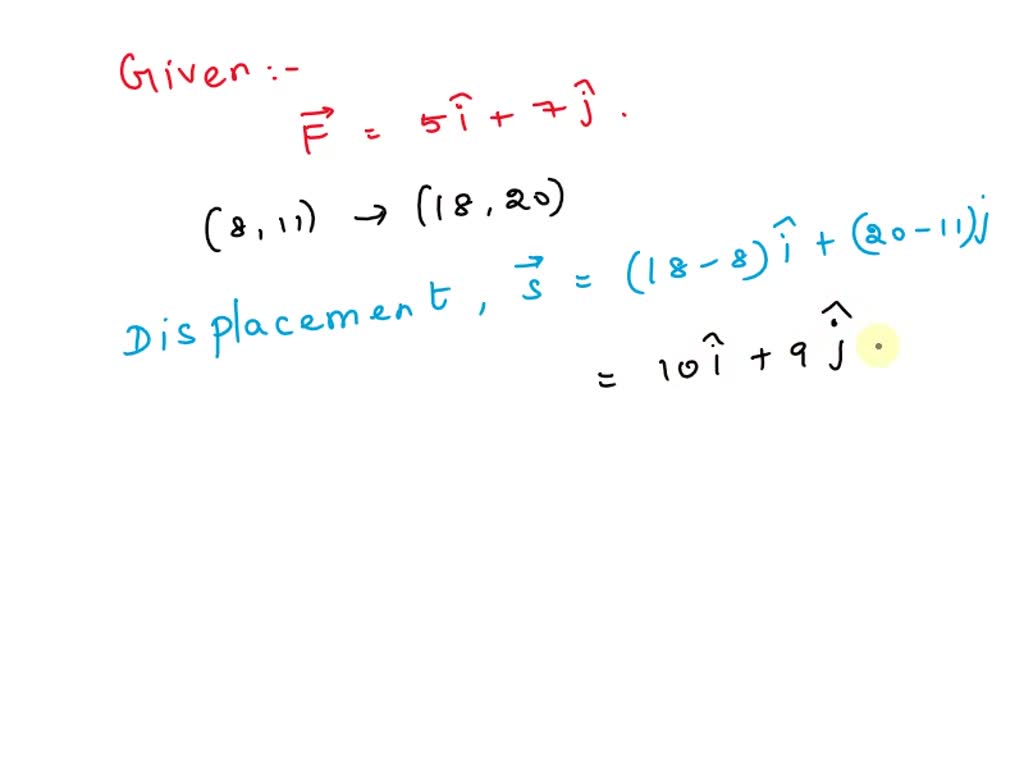 Given :-
F⃗ = 5î + 7ĵ .
(8, 11) → (18, 20)
Displacement, s⃗ = (18-8)î + (20-11)j
= 10î + 9ĵ